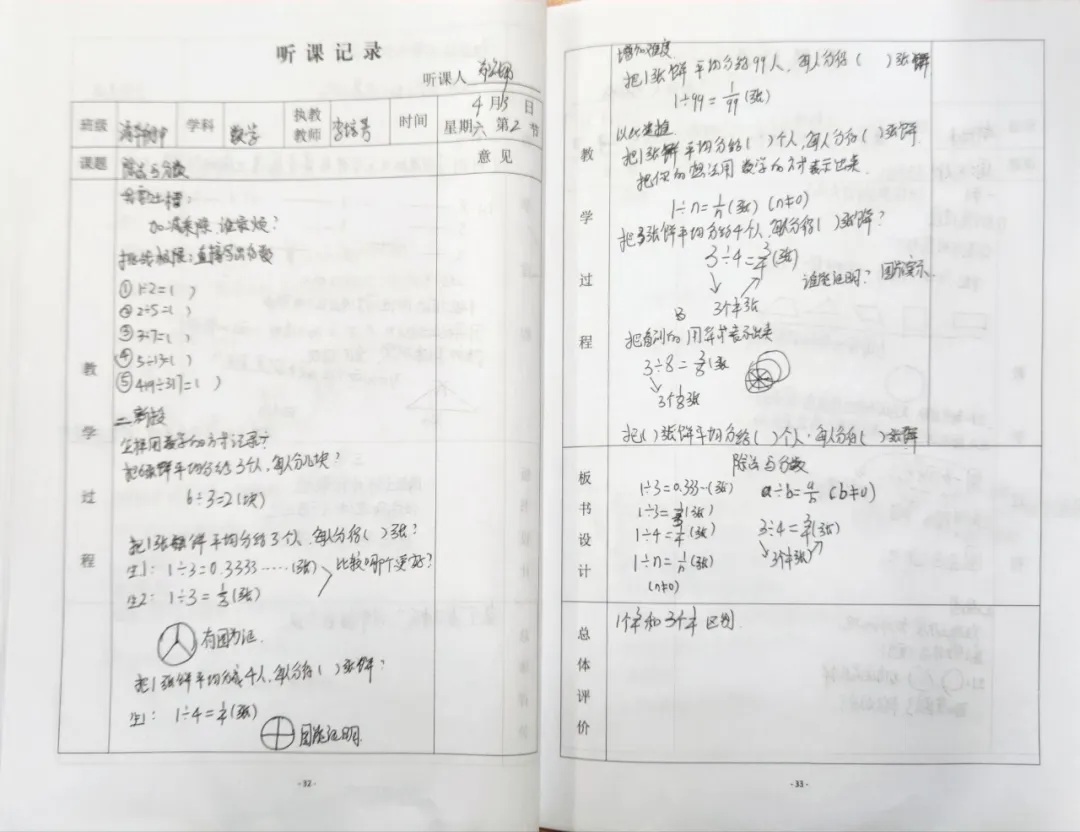 听课记录
听课人
班级 学科 数学 执教教师 时间 4月13日 星期六 第2节
课题 除法与分数 意见
教学过程
加减乘除 谁最烦?
挑战极限:直接写出分数
①1÷2=( )
②2÷5=( )
③3÷7=( )
④5÷13=( )
⑤419÷317=( )
二、新授
怎样用数学的方式记录?
把6块饼平均分给3个人,每人分几块?
6÷3=2(块)
把1张饼平均分给3个人,每人分得( )张?
生1: 1÷3=0.3333……(张) 比较哪个更好?
生2: 1÷3=1/3(张)
有图为证.
把1张饼平均分成4人,每人分得( )张饼?
生1: 1÷4=1/4(张)
图能证明.
·32·
教学过程
增加难度
把1张饼平均分给99人,每人分得( )张饼
1÷99=1/99(张)
以此类推
把1张饼平均分给( )个人,每人分得( )张饼.
把你的想法用数学的方式表示出来.
1÷n=1/n(张) (n≠0)
把3张饼平均分给4个人,每人分得( )张饼?
3÷4=3/4(张)
谁能证明? 图片演示.
3个1/4张
把看到的用算式表示出来
3÷8=3/8(张)
3个1/8张
把( )张饼平均分给( )个人,每人分得( )张饼
板书设计
除法与分数
1÷3=0.333…(张) a÷b=a/b (b≠0)
1÷3=1/3(张)
1÷4=1/4(张) 3÷4=3/4(张)
3个1/4张
1÷n=1/n(张)
(n≠0)
总体评价
1个3/4和3个1/4区别.
·33·